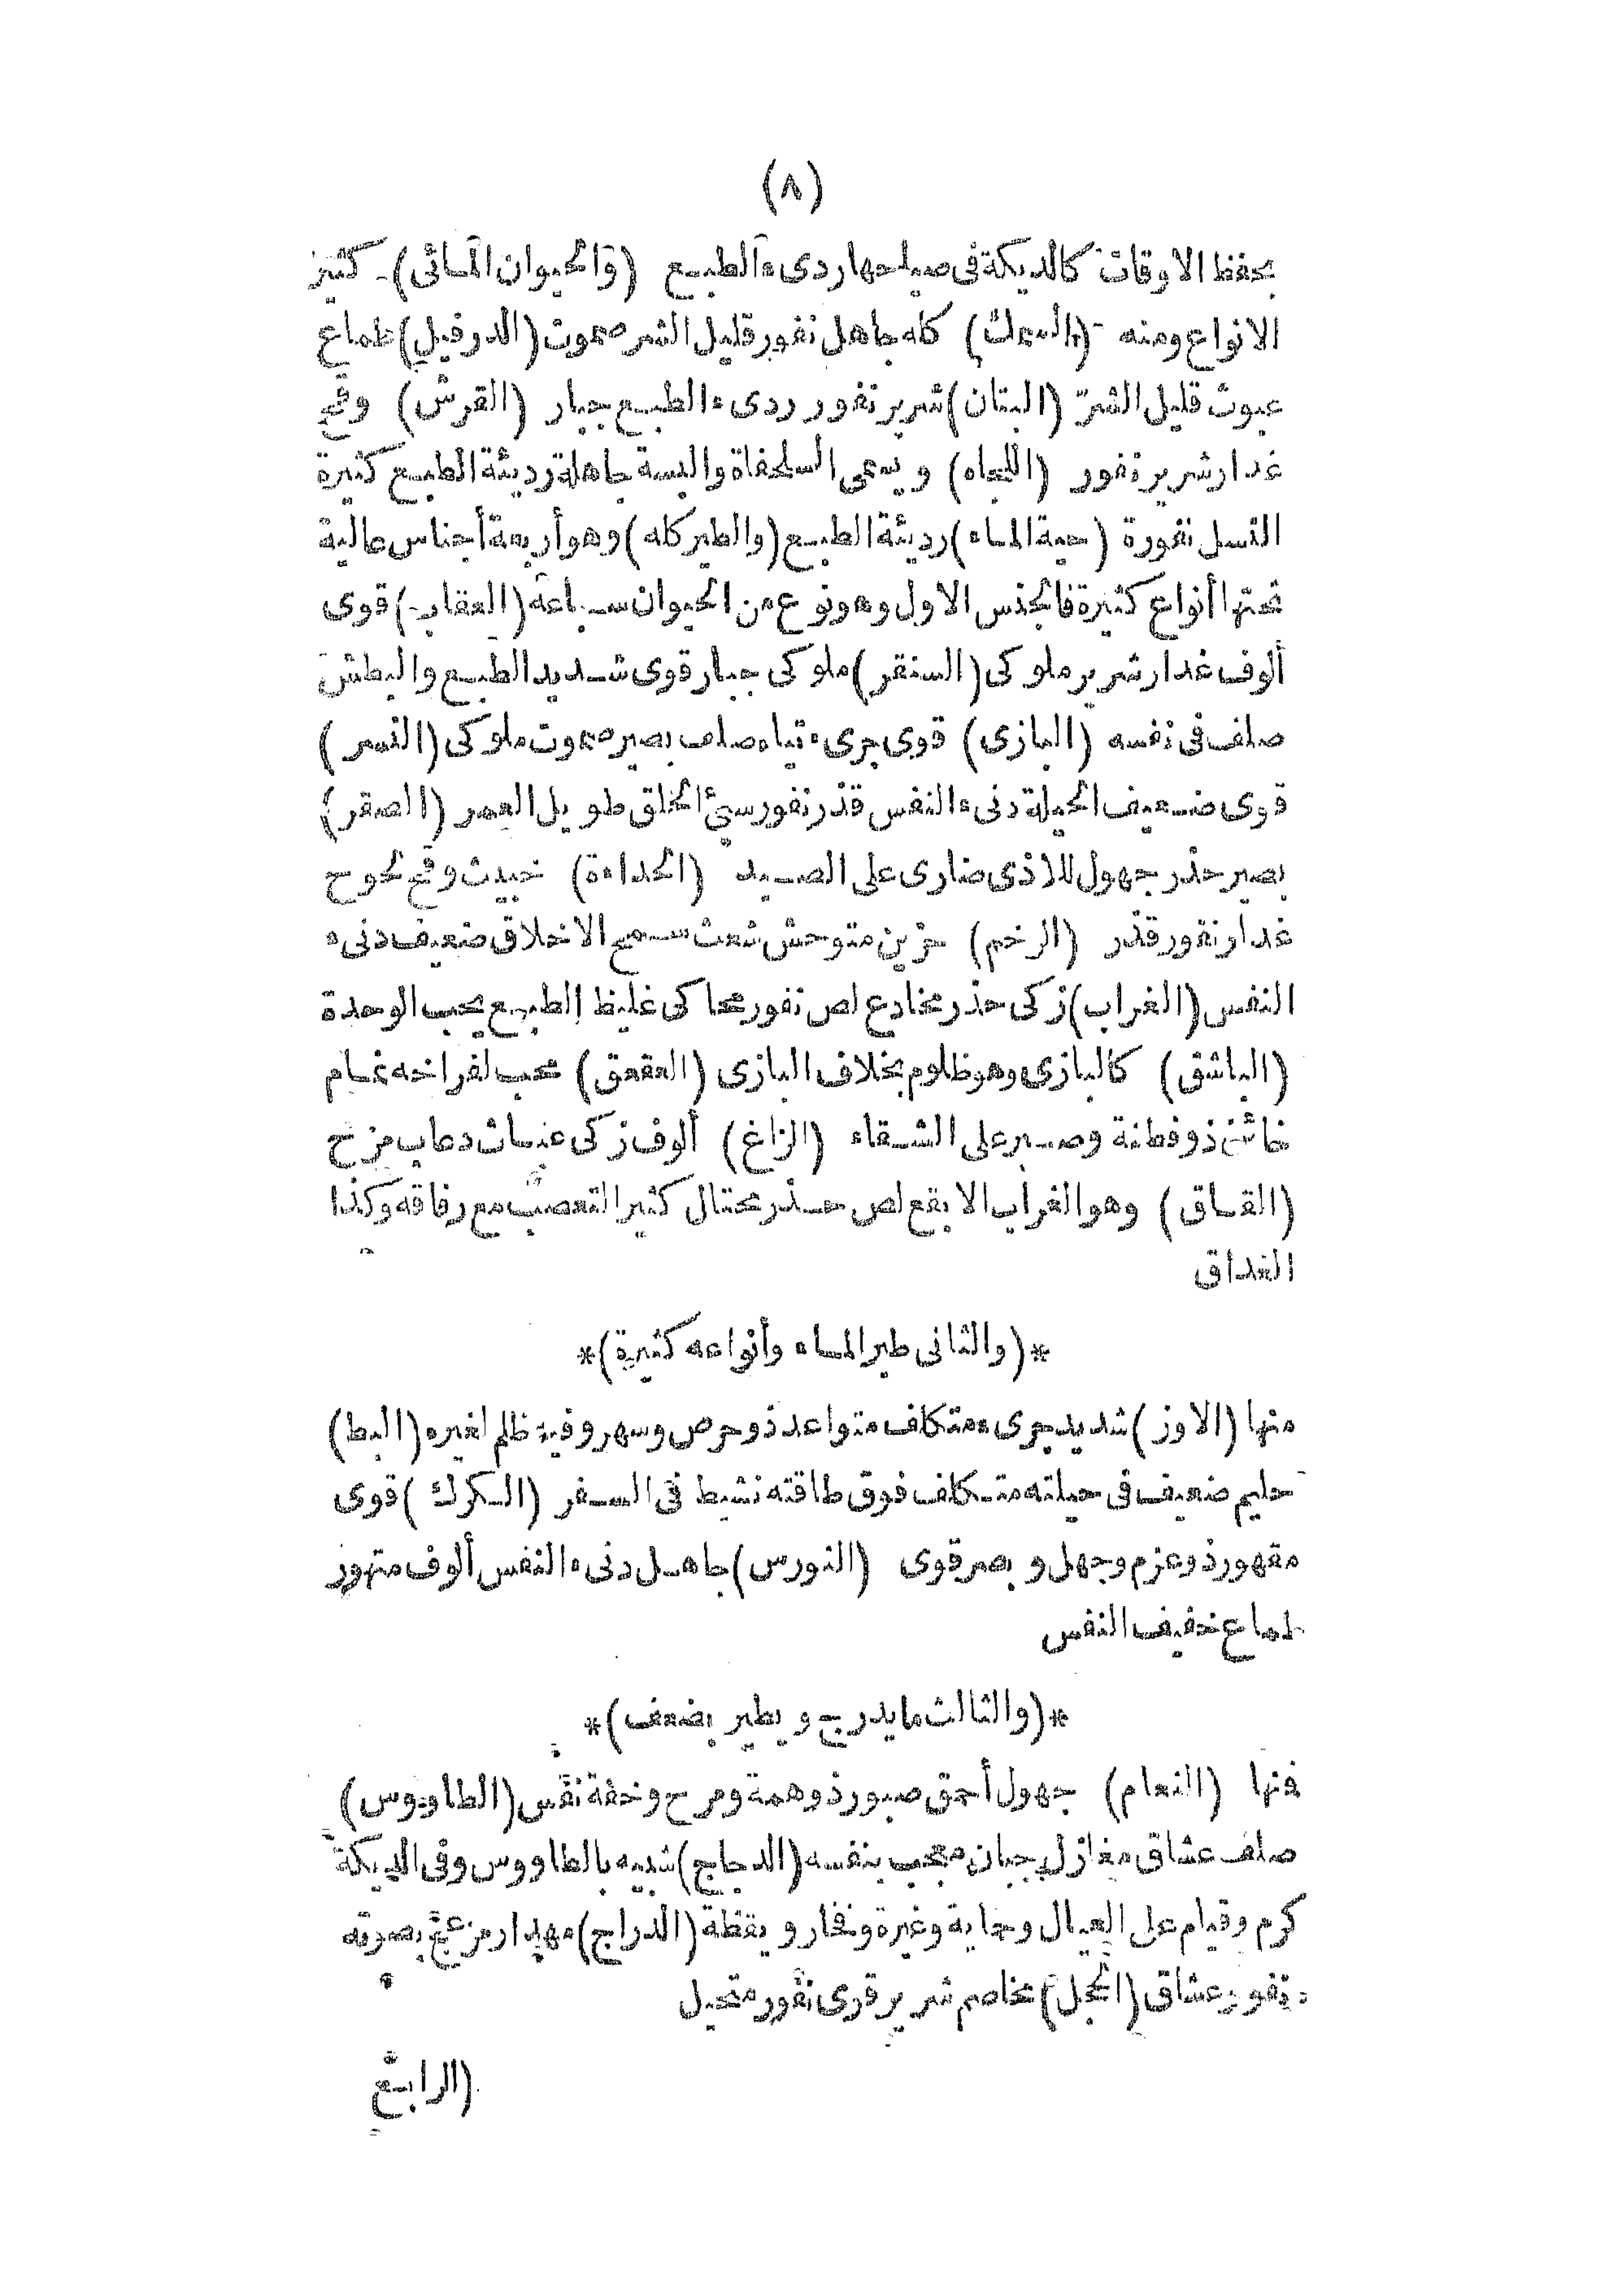 (٨)
يحفظ الاوقات كالديكة فى صياحها ردىء الطبع (والحيوان المائى) كثير
الانواع ومنه (السمك) كله جاهل نفور قليل الشر صموت (الدرفيل) طماع
عبوث قليل الشرّ (البتان) شرير نفور ردىء الطبع جبار (القرش) وقح
غدار شرير نفور (اللجاه) ويسمى السلحفاة والبسة جاهلة رديئة الطبع كثيرة
النسل نفورة (حية الماء) رديئة الطبع (والطير كله) وهو أربعة أجناس عالية
تحتها أنواع كثيرة فالجنس الاول وهو نوع من الحيوان سباعه (العقاب) قوى
ألوف غدار شرير ملوكى (السنقر) ملوكى جبار قوى شديد الطبع والبطش
صلف فى نفسه (البازى) قوى جرىء تياه صلف بصير صموت ملوكى (النسر)
قوى ضعيف الحيلة دنىء النفس قذر نفور سيئ الخلق طويل العمر (الصقر)
بصير حذر جهول للاذى ضارى على الصيد (الحداءة) خبيث وقح لحوح
غدار نفور قذر (الرخم) حزين متوحش شعث سمج الاخلاق ضعيف دنىء
النفس (الغراب) زكى حذر مخادع لص نفور محاكى غليظ الطبع يحب الوحدة
(الباشق) كالبازى وهو ظلوم بخلاف البازى (العقعق) محب لفراخه نمام
خائن ذو فطنة وصبر على الشقاء (الزاغ) ألوف زكى عباث دعاب مزح
(القاق) وهو الغراب الابقع لص حذر محتال كثير التعصب مع رفاقه وكذا
الغداق
*(والثانى طير الماء وأنواعه كثيرة)*
منها (الاوز) شديد جرىء متكلف متواعد ذو حرص وسهر وفيه ظلم لغيره (البط)
حليم ضعيف فى حيلته متكلف فوق طاقته نشيط فى السفر (الكرك) قوى
مقهور ذو عزم وجهل وبصر قوى (النورس) جاهل دنىء النفس ألوف متهور
طماع خفيف النفس
*(والثالث ما يدرج ويطير بضعف)*
فنها (النعام) جهول أحمق صبور ذو همة ومرح وخفة نفس (الطاووس)
صلف عشاق مغازل جبان معجب بنفسه (الدجاج) شبيه بالطاووس وفى الديكة
كرم وقيام على العيال وحماية وغيرة وفخار ويقظة (الدراج) مهذار مزعج بصوته
نفور عشاق (الحجل) مخاصم شرير قوى نفور متحيل
(الرابع